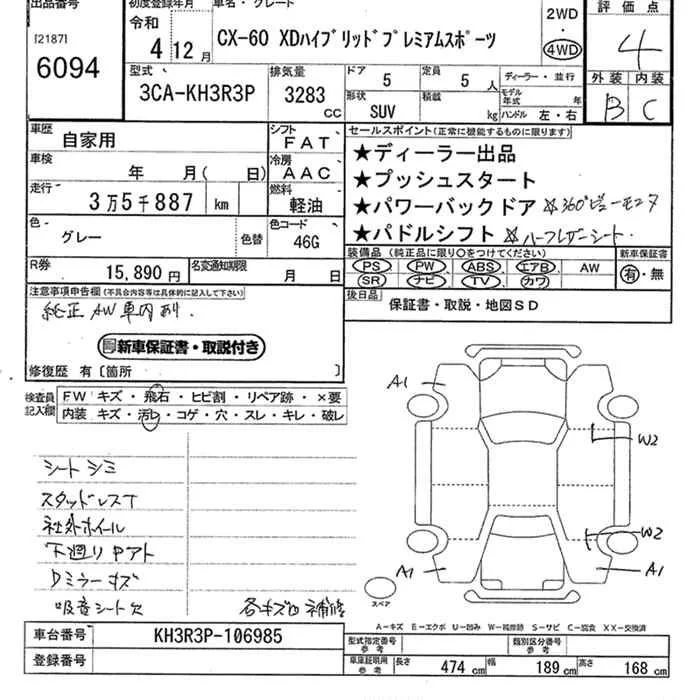 出品番号 初度登録年月 車名・グレード 評価点
[2187]
6094
令和 4年 12月
CX-60 XDハイブリッドプレミアムスポーツ
2WD
・
4WD
4
型式 3CA-KH3R3P
排気量 3283 CC
ドア 5 定員 5人
形状 SUV 積載 kg
ディーラー・並行
モデル年式 年
ハンドル 左・右
外装 内装
B C
車歴 自家用
シフト FAT
車検 年 月( 日)
冷房 AAC
走行 3万5千887 km
燃料 軽油
色 グレー 色替
色コード 46G
R券 15,890円
名変通知期限 月 日
セールスポイント(正常に機能するものに限ります)
★ディーラー出品
★プッシュスタート
★パワーバックドア ☆360°ビューモニタ
★パドルシフト ☆ハーフレザーシート
装備品(純正品に限り○をつけてください)
PS PW ABS エアB AW
SR ナビ TV カワ
新車保証書
有・無
後日品 保証書・取説・地図SD
注意事項申告欄(不具合内容等は具体的に記入して下さい)
純正AW車内あり.
新車保証書・取説付き
修復歴 有〔箇所 〕
検査員記入欄
FW キズ・飛石・ヒビ割・リペア跡・×要
内装 キズ・汚レ・コゲ・穴・スレ・キレ・破レ
シートシミ
スタッドレスT
社外ホイール
下廻りPアト
Dミラーキズ
吸音シート欠
各キズ 補修
A1
W2
W2
A1
A1
スペア
A－キズ E－エクボ U－凹み W－補修跡 S－サビ C－腐食 XX－交換済
車台番号 KH3R3P-106985
登録番号
型式指定番号 参考
類別区分番号 参考
車庫証明用 参考
長さ 474 cm 幅 189 cm 高さ 168 cm